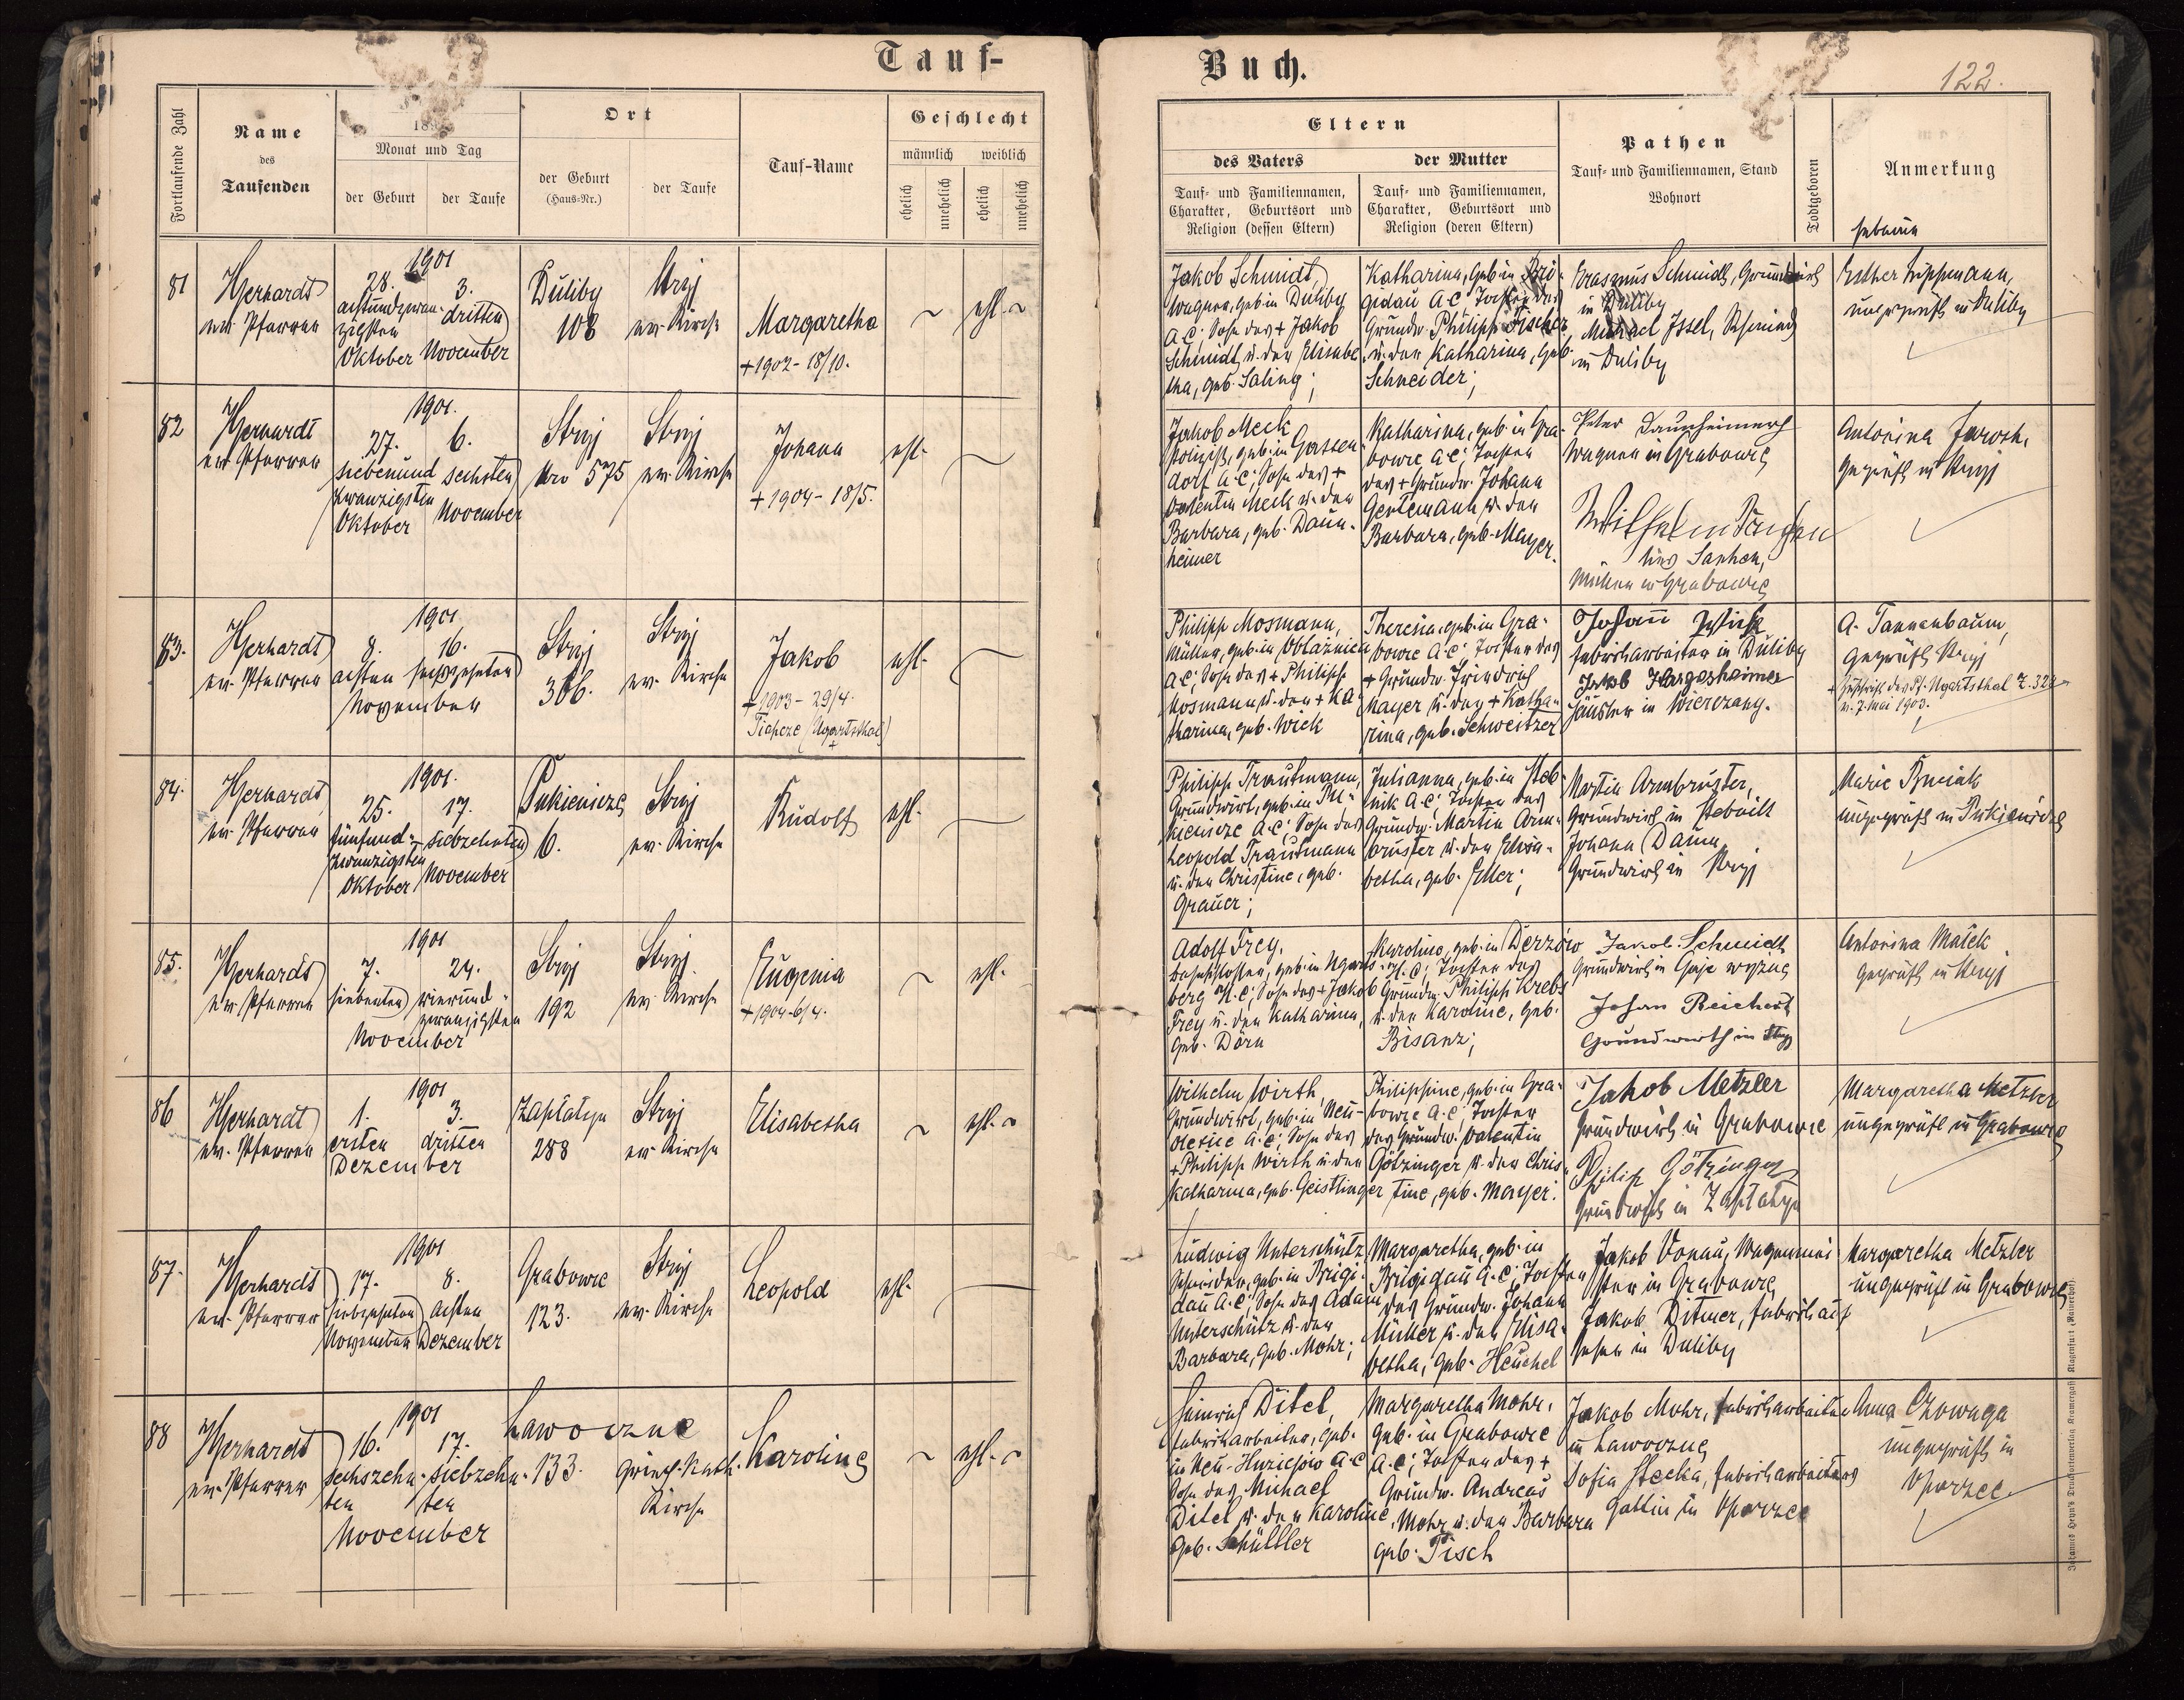 Tauf-
Buch.
122.
Fortlaufende Zahl
Name
des
Taufenden
Monat und Tag
der Geburt
der Taufe
Ort
der Geburt
(Haus-Nr.)
der Taufe
Tauf-Name
Geschlecht
männlich
weiblich
ehelich
unehelich
ehelich
unehelich
Eltern
des Vaters
der Mutter
Tauf- und Familiennamen,
Charakter, Geburtsort und
Religion (dessen Eltern)
Tauf- und Familiennamen,
Charakter, Geburtsort und
Religion (deren Eltern)
Pathen
Tauf- und Familiennamen, Stand
Wohnort
Todtgeboren
Anmerkung
Hebamme
81
Gerhardt
ev. Pfarrer
1901
28.
achtundzwan-
zigsten
Oktober
3.
dritten
November
Duliby
108
Stryj
ev. Kirche
Margaretha
+1902-18/10.
ehl.
Jakob Schmidt,
Wagner, geb. in Duliby
A.C; Sohn des + Jakob
Schmidt u. der Elisabe-
tha, geb. Saling;
Katharina, geb. in Bri-
gidau A.C; Tochter des
Grundw. Philipp Fischer
u. der Katharina, geb.
Schneider;
Erasmus Schmidt, Grundwirth
in Duliby
Michael Issel, Schmied
in Duliby
Esther Lippmann,
ungeprüft in Duliby
82
Gerhardt
ev. Pfarrer
1901.
27.
siebenund
zwanzigsten
Oktober
6.
sechsten
November
Stryj
Nro 575
Stryj
ev. Kirche
Johann
+1904-18/5.
ehl.
Jakob Meck
Polizist, geb. in Gassen-
dorf A.C; Sohn des +
Valentin Meck u. der
Barbara, geb. Daun-
heimer
Katharina, geb. in Gra-
bowce A.C; Tochter
des + Grundw. Johann
Gentemann u. der
Barbara, geb. Mayer.
Peter Daunheimer
Wagner in Grabowce
Müller in Grabowce
Antonina Jarosch,
geprüft in Stryj
83.
Gerhardt
ev. Pfarrer
1901
8.
achten
16.
sechzehnten
November
Stryj
366.
Stryj
ev. Kirche
Jakob
+1903-29/4.
Tiapcze (Ugartsthal)
ehl.
Philipp Mosmann,
Müller, geb. in Oblaznica
A.C; Sohn des + Philipp
Mosmann u. der + Ka-
tharina, geb. Wick
Theresia, geb. in Gra-
bowce A.C; Tochter des
+ Grundw. Friedrich
Mayer u. der + Katha-
rina, geb. Schweitzer
Fabriksarbeiter in Duliby
Jakob Hargesheimer
Häusler in Wierczany.
A. Tannenbaum,
geprüft Stryj
+ Zuschrift des Pf. Ugartsthal Z. 322
v. 7. Mai 1903.
84.
Gerhardt
ev. Pfarrer
1901.
25.
fünfund-
zwanzigsten
Oktober
17.
siebzehnten
November
Pukienicze
6.
Stryj
ev. Kirche
Rudolf
ehl.
Philipp Trautmann,
Grundwirt, geb. in Pu-
kienicze A.C; Sohn des
Leopold Trautmann
u. der Christine, geb.
Grauer;
Julianna, geb. in Steb-
nik A.C; Tochter des
Grundw. Martin Arm-
bruster u. der Elisa-
betha, geb. Etter;
Martin Armbruster,
Grundwirth in Stebnik
Johann Daum,
Grundwirth in Stryj
Marie Bruiak
ungeprüft in Pukienicze
85.
Gerhardt
ev. Pfarrer
1901
7.
siebenten
24.
vierund-
zwanzigsten
November
Stryj
192
Stryj
ev. Kirche
Eugenia
+1904-6/4.
ehl.
Adolf Frey,
Bahnschlosser, geb. in Ugarts-
berg H.C; Sohn des + Jakob
Frey u. der Katharina,
geb. Dörn
Karoline, geb. in Derzów
H.C; Tochter des
Grundw. Philipp Krebs
u. der Karoline, geb.
Bisanz;
Jakob Schmidt
Grundwirth in Gaje wyzne
Johan Reichert
Grundwirth in Stryj
Antonina Matek
geprüft in Stryj
86
Gerhardt
ev. Pfarrer
1901
1.
ersten
3.
dritten
Dezember
Zaplatyn
288
Stryj
ev. Kirche
Elisabetha
ehl.
Wilhelm Wirth,
Grundwirt, geb. in Neu-
Olesice A.C; Sohn des
+ Philipp Wirth u. der
Katharina, geb. Geistlinger
Philippine, geb. in Gra-
bowce A.C; Tochter
des Grundw. Valentin
Götzinger u. der Chris-
tine, geb. Mayer.
Jakob Metzler
Grundwirth in Grabowce
Philip Götzinger
Grundwirth in Zaplatyn
Margaretha Metzler
ungeprüft in Grabowce
87.
Gerhardt
ev. Pfarrer
1901
17.
siebzehnten
November
8.
achten
Dezember
Grabowce
123.
Stryj
ev. Kirche
Leopold
ehl.
Ludwig Unterschütz
Schneider, geb. in Brigi-
dau A.C; Sohn des Adam
Unterschütz u. der
Barbara, geb. Mohr;
Margaretha, geb. in
Brigidau A.C; Tochter
des Grundw. Johann
Müller u. der Elisa-
betha, geb. Heuchel
Jakob Vonau, Wagenmei-
ster in Grabowce
Jakob Ditmer, Fabriksauf-
seher in Duliby
Margaretha Metzler
ungeprüft in Grabowce
88
Gerhardt
ev. Pfarrer
1901
16.
sechszehn-
ten
17.
siebzehn-
ten
November
Lawoczne
133.
Griech. Kath.
Kirche
Karoline
ehl.
Heinrich Ditel,
Fabriksarbeiter, geb.
in Neu-Huziejow A.C
Sohn des Michael
Ditel u. der Karoline,
geb. Schüttler
Margaretha Mohr,
geb. in Grabowce
A.C; Tochter des +
Grundw. Andreas
Mohr u. der Barbara
geb. Pisch
Jakob Mohr, Fabriksarbeiter
in Lawoczne
Sofia Stecka, Fabriksarbeiters
Gattin in Oporzec
Anna Chowaga
ungeprüft in
Oporzec.